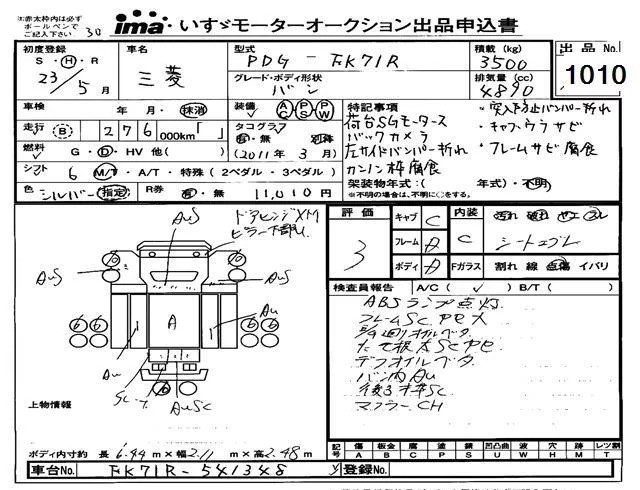 ※赤太枠内は必ず
ボールペンで
ご記入下さい 30
ima いすゞモーターオークション出品申込書
出品 No.
1010
初度登録
S・H・R
23年 5月
車名
三菱
型式
PDG-FK71R
グレード・ボディ形状
バン
積載(kg)
3500
排気量(cc)
4890
車検 年 月・抹消
走行 B 276 000km「 」
燃料 G・D・HV 他( )
シフト 6 M/T・A/T・特殊(2ペダル・3ペダル)
色 シルバー(指定) R券 有・無 11,010円
装備 AC PS PW
タコグラフ
有・無 別体
(2011年 3月)
特記事項
荷台SGモータース
バックカメラ
左サイドバンパー折れ
カンノン枠腐食
・突入防止バンパー折れ
・キャブウラサビ
・フレームサビ腐食
架装物年式:( 年式)・不明
※不明の場合は、不明に○をする。
ドアヒンジXM
ピラー下部
AuS
AuS
AuS
A
Au
Au
AuSC
上物情報
ボディ内寸約 長 6.44 m×幅 2.11 m×高 2.48 m
車台No. FK71R-541348
評価
3
キャブ C
フレーム
ボディ
内装 C
汚れ 破れ コゲ スレ
シートコゲ
Fガラス 割れ 線 点傷 イバリ
検査員報告 A/C( ✓ ) B/T( )
ABSランプ点灯
フレームSC
デフオイルベタ
バン内Au
マフラーCH
記号 傷 板金 腐 塗 錆 凹凸曲 波 穴 跡 レツ割
A B C P S U W H M T
登録No.